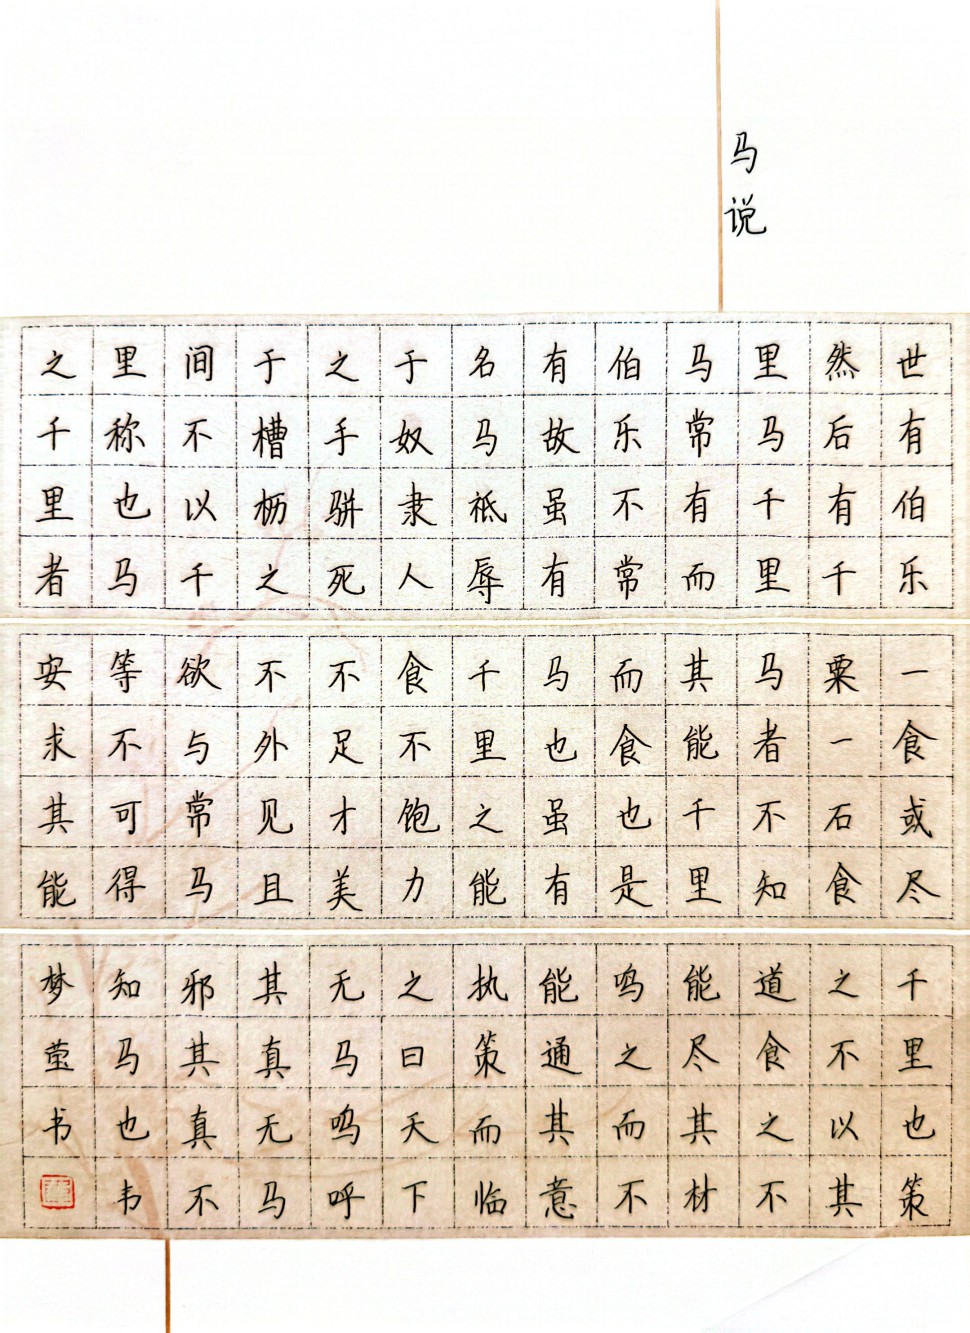 马说
世有伯乐
然后有千
里马千里
马常有而
伯乐不常
有故虽有
名马祗辱
于奴隶人
之手骈死
于槽枥之
间不以千
里称也马
之千里者
一食或尽
粟一石食
马者不知
其能千里
而食也是
马也虽有
千里之能
食不饱力
不足才美
不外见且
欲与常马
等不可得
安求其能
千里也策
之不以其
道食之不
能尽其材
鸣之而不
能通其意
执策而临
之曰天下
无马呜呼
其真无马
邪其真不
知马也韦
梦莹书